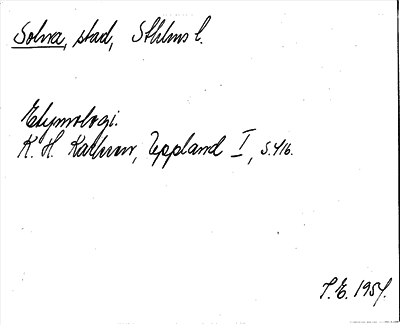 Solna, stad, Sthlms l.
Etymologi.
K. H. Karlsson, Uppland I, s. 416.
T. E. 1954.